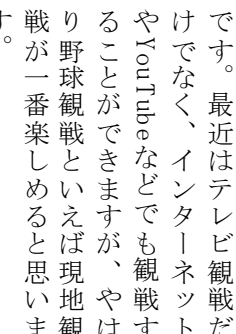 です。最近はテレビ観戦だ
けでなく、インターネット
やYouTubeなどでも観戦す
ることができますが、やは
り野球観戦といえば現地観
戦が一番楽しめると思いま
す。